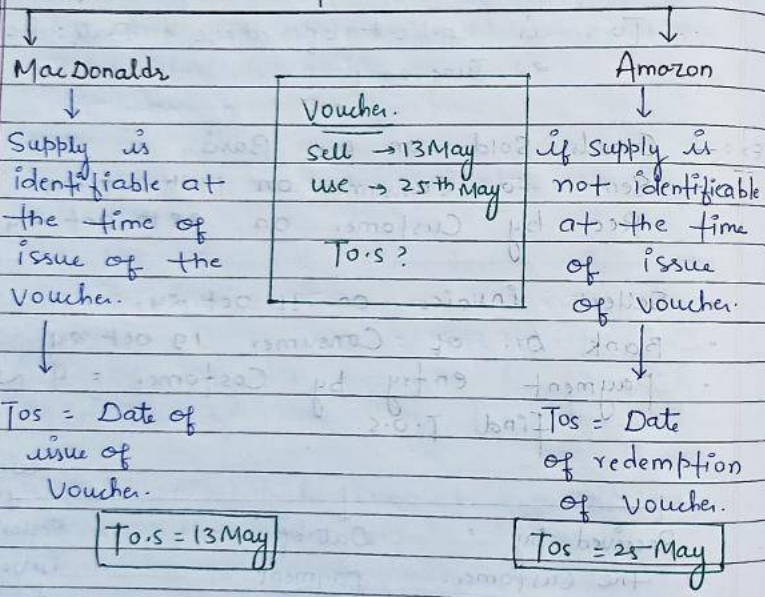 MacDonalds
Supply is
identifiable at
the time of
issue of the
voucher.
Tos = Date of
issue of
Voucher.
To.s = 13 May
Voucher.
sell → 13 May
use → 25th May
To.s ?
Amazon
if supply is
not identificable
at the time
of issue
of voucher.
Tos = Date
of redemption
of voucher.
Tos = 25 May